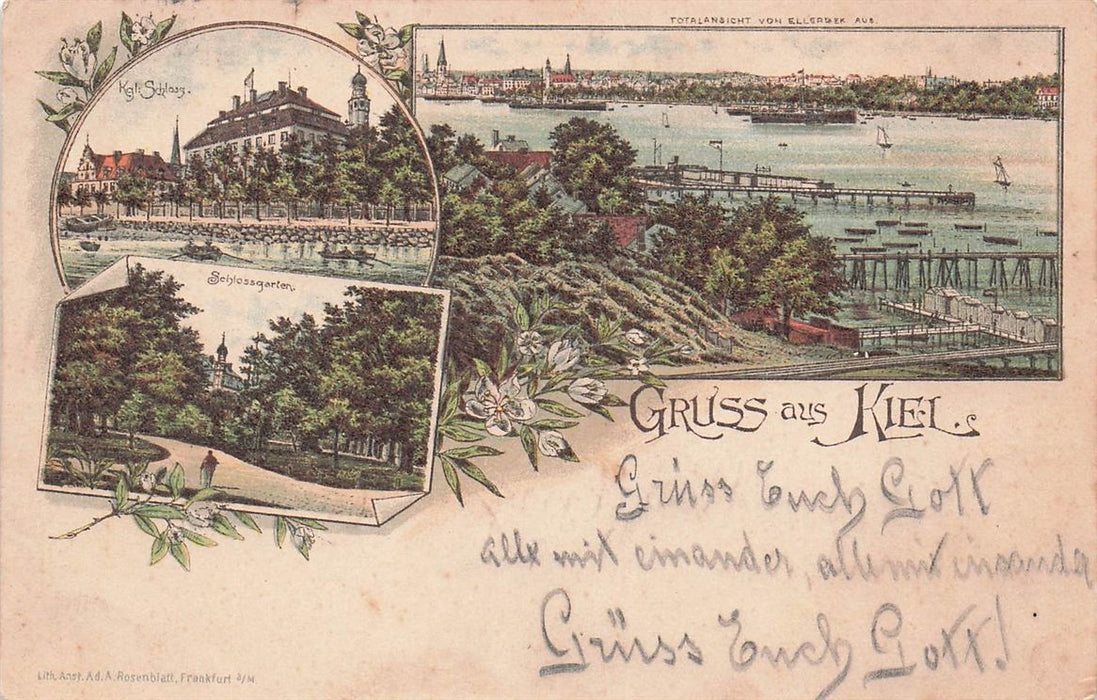 TOTALANSICHT VON ELLERBEK AUS
Kgl. Schloss.
Schlossgarten.
GRUSS aus KIEL.
Grüss Euch Gott
alle mit einander, alle mit einander
Grüss Euch Gott!
Lith. Anst. Ad. A. Rosenblatt, Frankfurt a/M